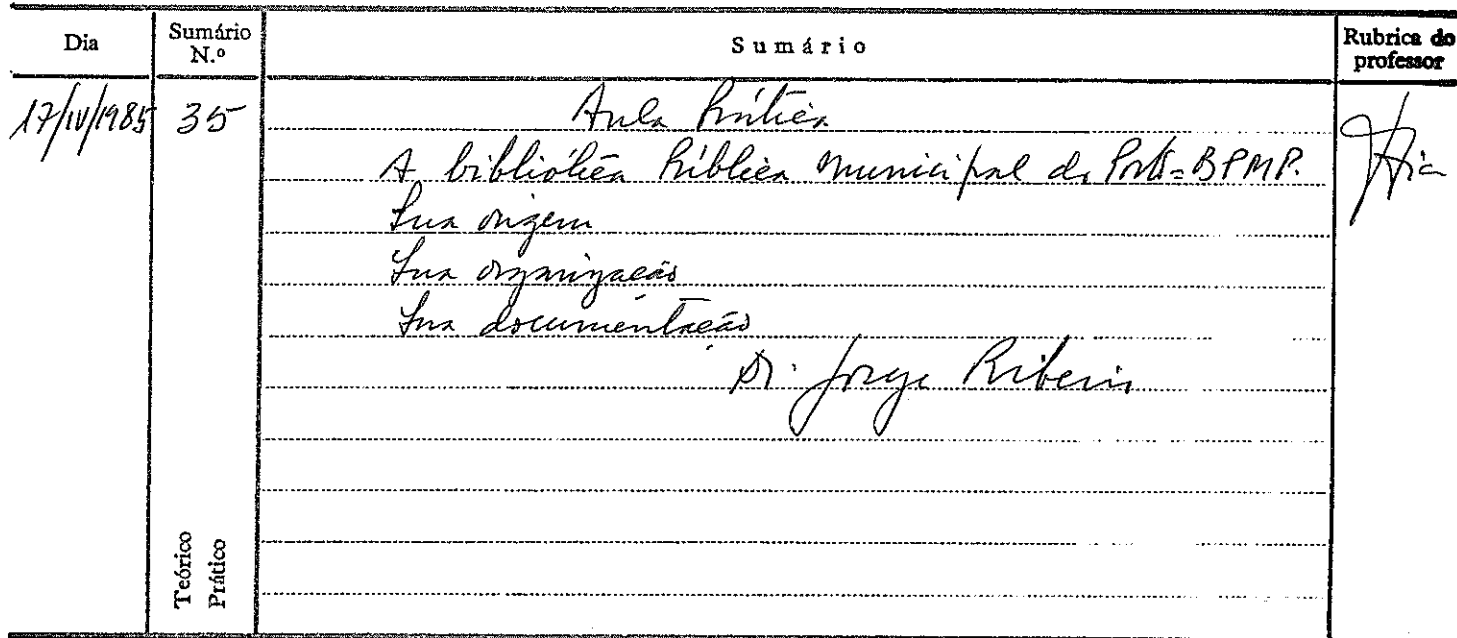 Dia
Sumário N.º
Sumário
Rubrica do professor
17/IV/1985
35
Aula Prática
A biblioteca Pública Municipal do Porto = BPMP.
Sua origem
Sua organização
Sua documentação
Dr. Jorge Ribeiro
Teórico
Prático